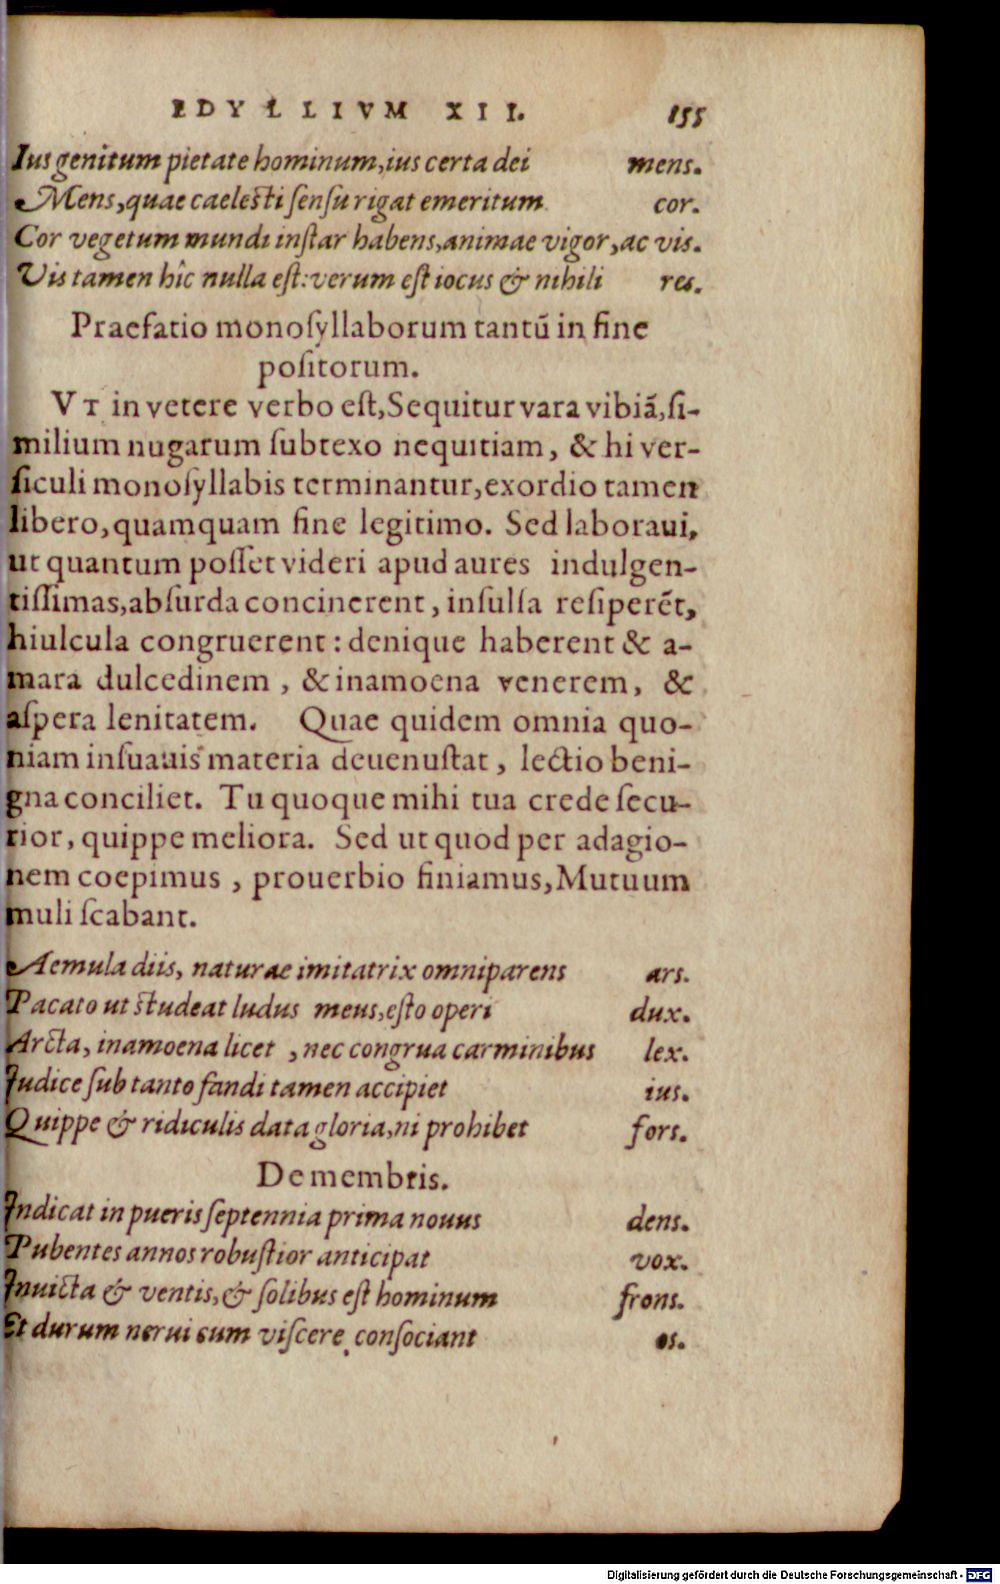 EDYLLIVM XII. 155
Ius genitum pietate hominum, ius certa dei mens.
Mens, quae caelesti ſenſu rigat emeritum cor.
Cor vegetum mundi inſtar habens, animae vigor, ac vis.
Vis tamen hîc nulla eſt: verum eſt iocus & nihili res.
Praefatio monoſyllaborum tantū in fine
poſitorum.
VT in vetere verbo eſt, Sequitur vara vibiā, ſi-
milium nugarum ſubtexo nequitiam, & hi ver-
ſiculi monoſyllabis terminantur, exordio tamen
libero, quamquam fine legitimo. Sed laboraui,
ut quantum poſſet videri apud aures indulgen-
tiſſimas, abſurda concinerent, inſulſa reſiperēt,
hiulcula congruerent: denique haberent & a-
mara dulcedinem, & inamoena venerem, &
aſpera lenitatem. Quae quidem omnia quo-
niam inſuauis materia deuenuſtat, lectio beni-
gna conciliet. Tu quoque mihi tua crede ſecu-
rior, quippe meliora. Sed ut quod per adagio-
nem coepimus, prouerbio finiamus, Mutuum
muli ſcabant.
Aemula diis, naturae imitatrix omniparens ars.
Pacato ut studeat ludus meus, eſto operi dux.
Arcta, inamoena licet, nec congrua carminibus lex.
Iudice ſub tanto fandi tamen accipiet ius.
Quippe & ridiculis data gloria, ni prohibet fors.
De membris.
Indicat in pueris ſeptennia prima nouus dens.
Pubentes annos robuſtior anticipat vox.
Inuicta & ventis, & ſolibus eſt hominum frons.
Et durum nerui cum viſcere conſociant os.
Digitalisierung gefördert durch die Deutsche Forschungsgemeinschaft - DFG